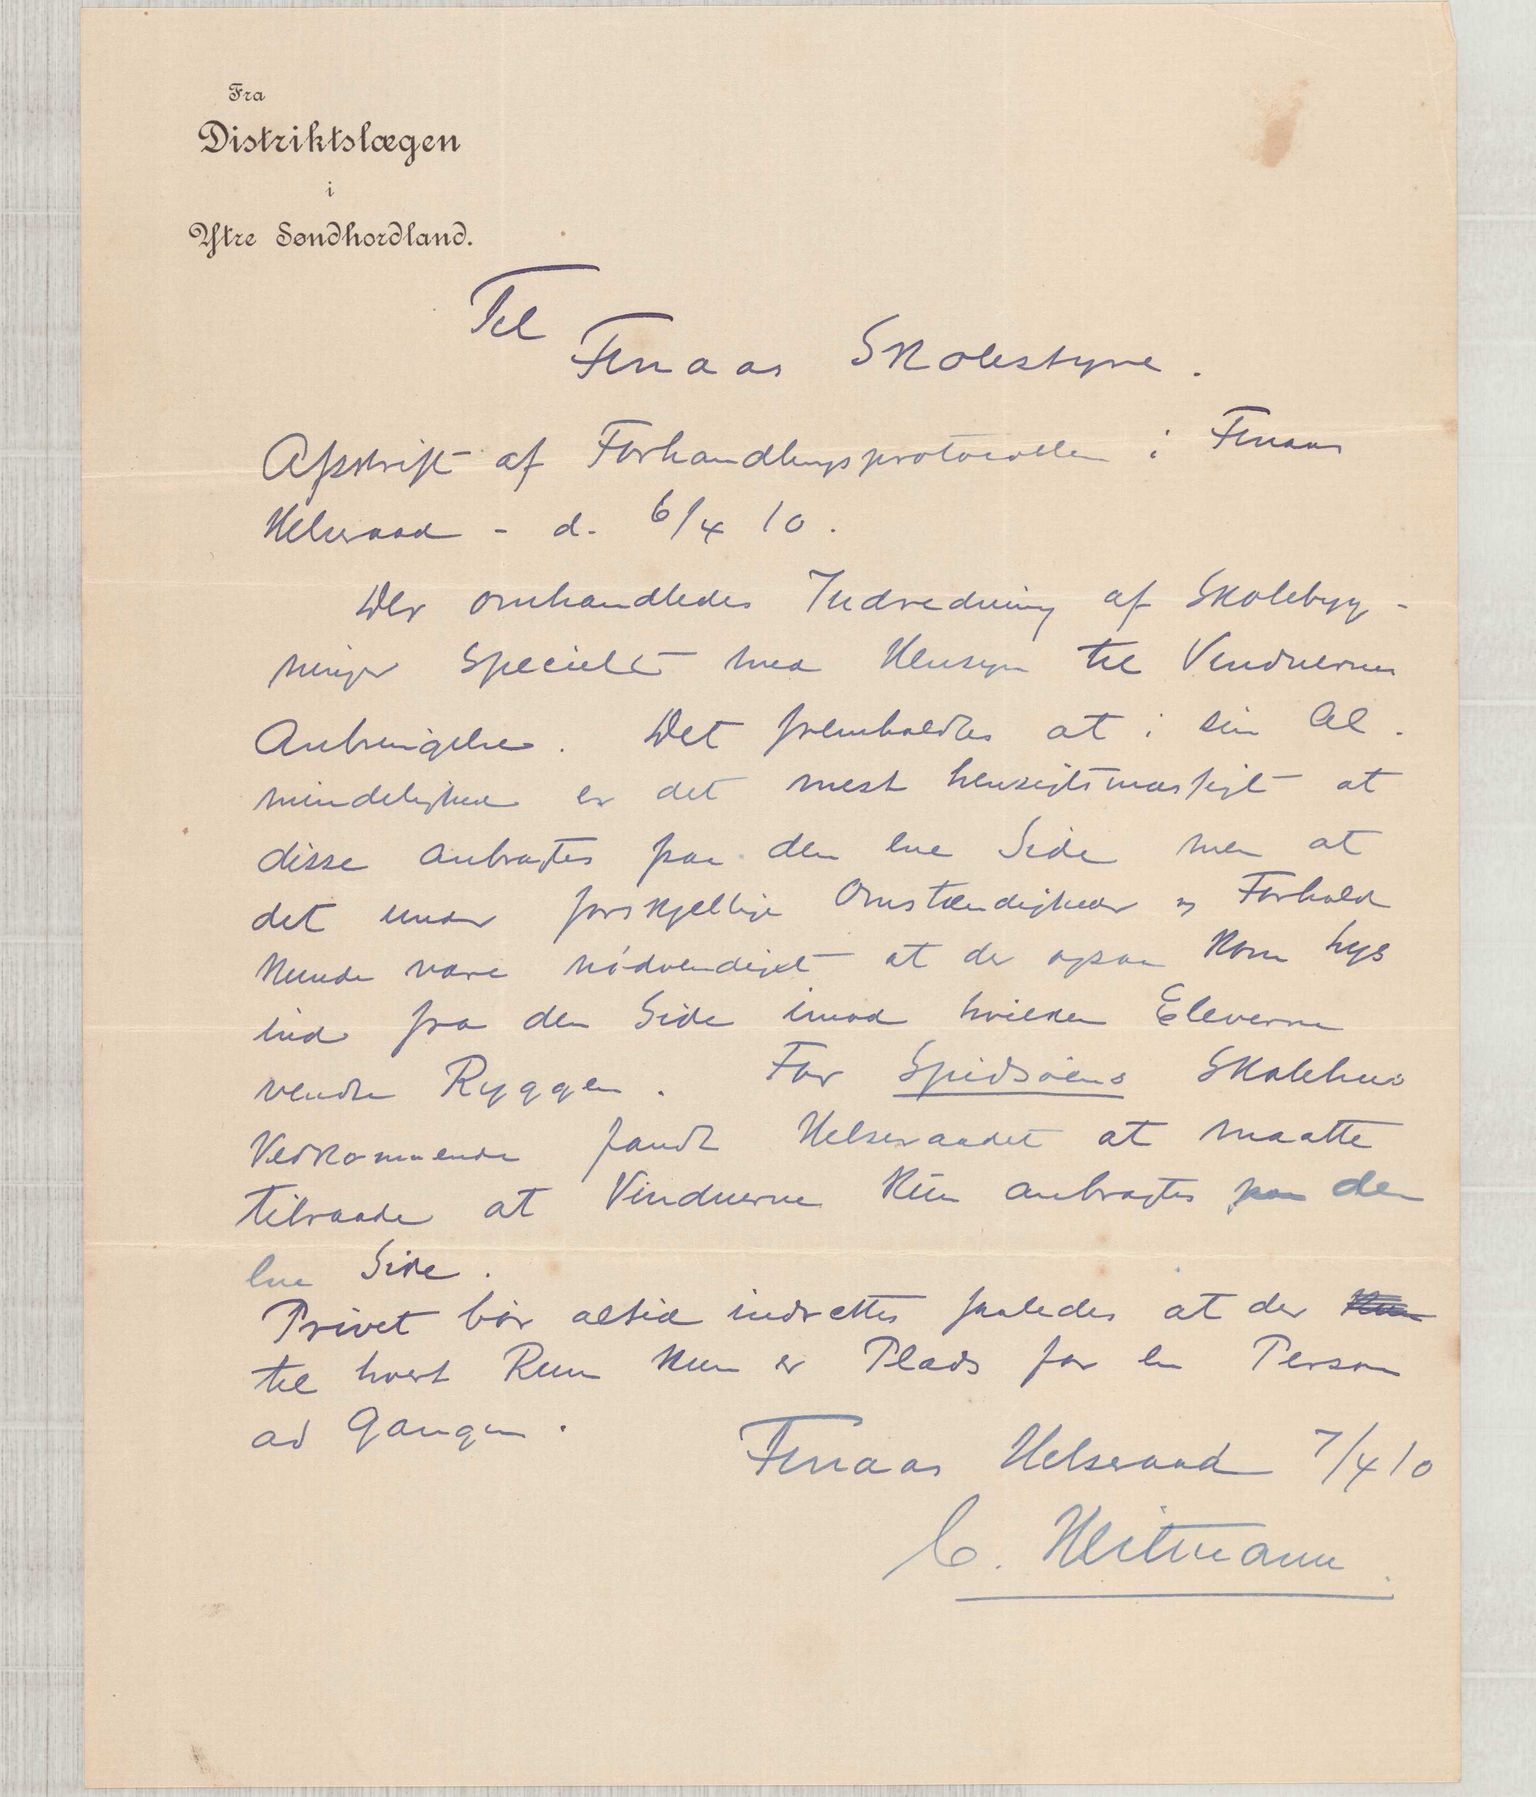 Fra
Distriktslægen
i
Ytre Søndhordland.
Til
Finaas Skolestyre.
Afskrift af Forhandlingsprotocollen i Finaas
Helseraad - d. 6/4 10.
Der omhandledes Indredning af Skolebyg-
ninger specielt med Hensyn til Vinduernes
Anbringelse. Det fremholdtes at i sin Al-
mindelighed er det mest hensigtsmæssigt at
disse anbragtes paa den ene Side men at
det under forskjellige Omstændigheder og Forhold
kunde være nødvendigt at der ogsaa kom Lys
ind fra den Side imod hvilken Eleverne
vendte Ryggen. For Spidsøens Skolehus
Vedkommende fandt Helseraadet at maatte
tilraade at Vinduerne kun anbragtes paa den
ene Side.
Privet bør altid indrettes saaledes at der
til hvert Rum kun er Plads for en Person
ad Gangen.
Finaas Helseraad 7/4 10
C. Heitmann.